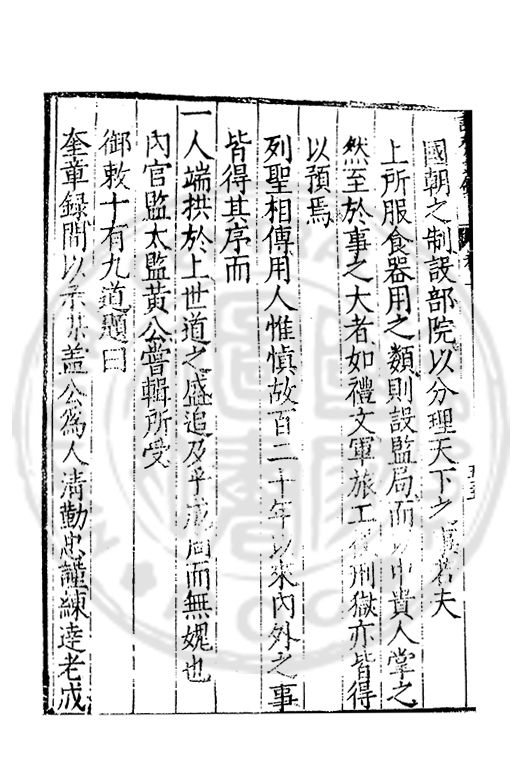 國朝之制設部院以分理天下之 若夫
上所服食器用之類則設監局而以中貴人掌之
然至於事之大者如禮文軍旅工 刑獄亦皆得
以預焉
列聖相傳用人惟慎故百二十年以來內外之事
皆得其序而
一人端拱於上世道之盛追及乎成周而無媿也
內官監太監黃公嘗輯所受
御敕十有九道題曰
奎章録間以示 蓋公為人清勤忠謹練達老成